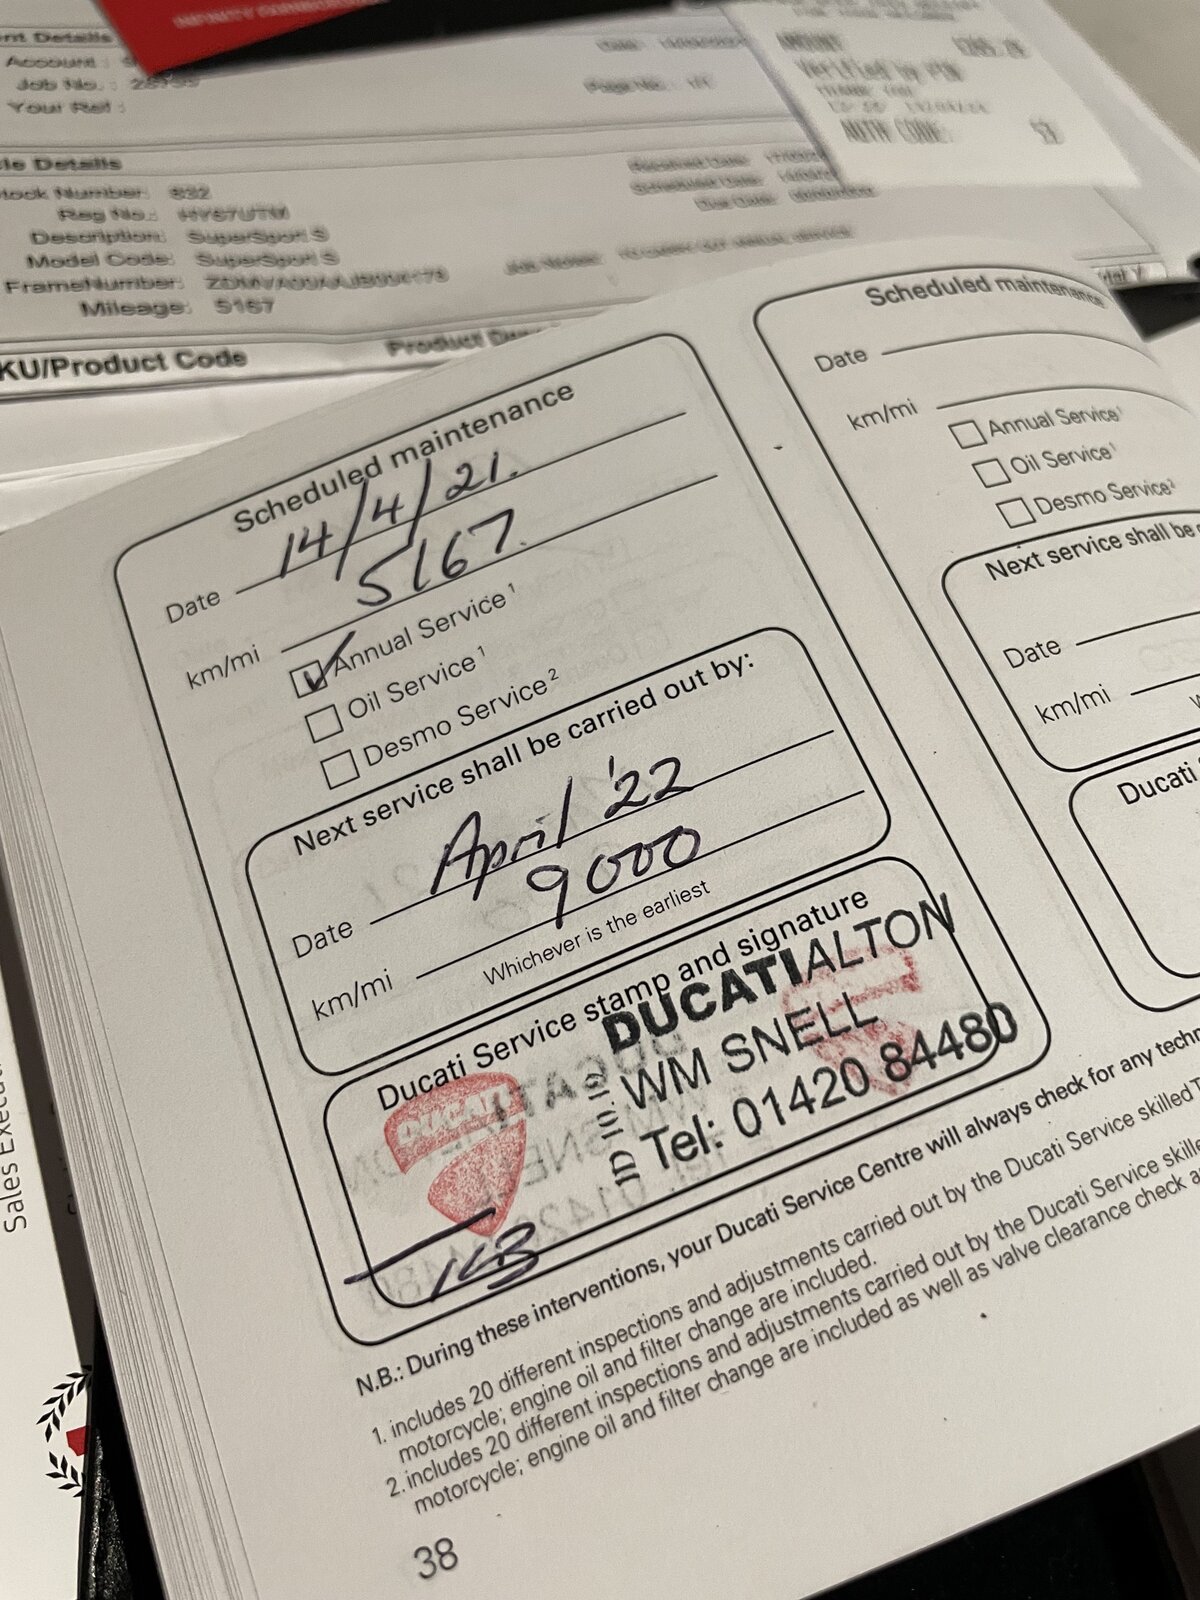 INFINITY
nt Details
Account :
Job No. :
Your Ref :
Page No. :
AMOUNT
Verified by PIN
THANK YOU
AUTH CODE:
le Details
tock Number: S32
Reg No.: HY67UTM
Description: SuperSport S
Model Code: SuperSport S
FrameNumber:
Mileage: 5167
KU/Product Code
Product
Scheduled maintenance
Date 14/4/21.
km/mi 5167.
Annual Service 1
Oil Service 1
Desmo Service 2
Next service shall be carried out by:
Date April '22
km/mi 9000
Whichever is the earliest
Ducati Service stamp and signature
DUCATI
DUCATIALTON
WM SNELL
JD 10.19
Tel: 01420 84480
N.B.: During these interventions, your Ducati Service Centre will always check for any techn
1. includes 20 different inspections and adjustments carried out by the Ducati Service skilled T
motorcycle; engine oil and filter change are included.
2. includes 20 different inspections and adjustments carried out by the Ducati Service skille
motorcycle; engine oil and filter change are included as well as valve clearance check a
38
Scheduled maintenance
Date
km/mi
Annual Service 1
Oil Service 1
Desmo Service 2
Next service shall be
Date
km/mi
Ducati
Sales Execu